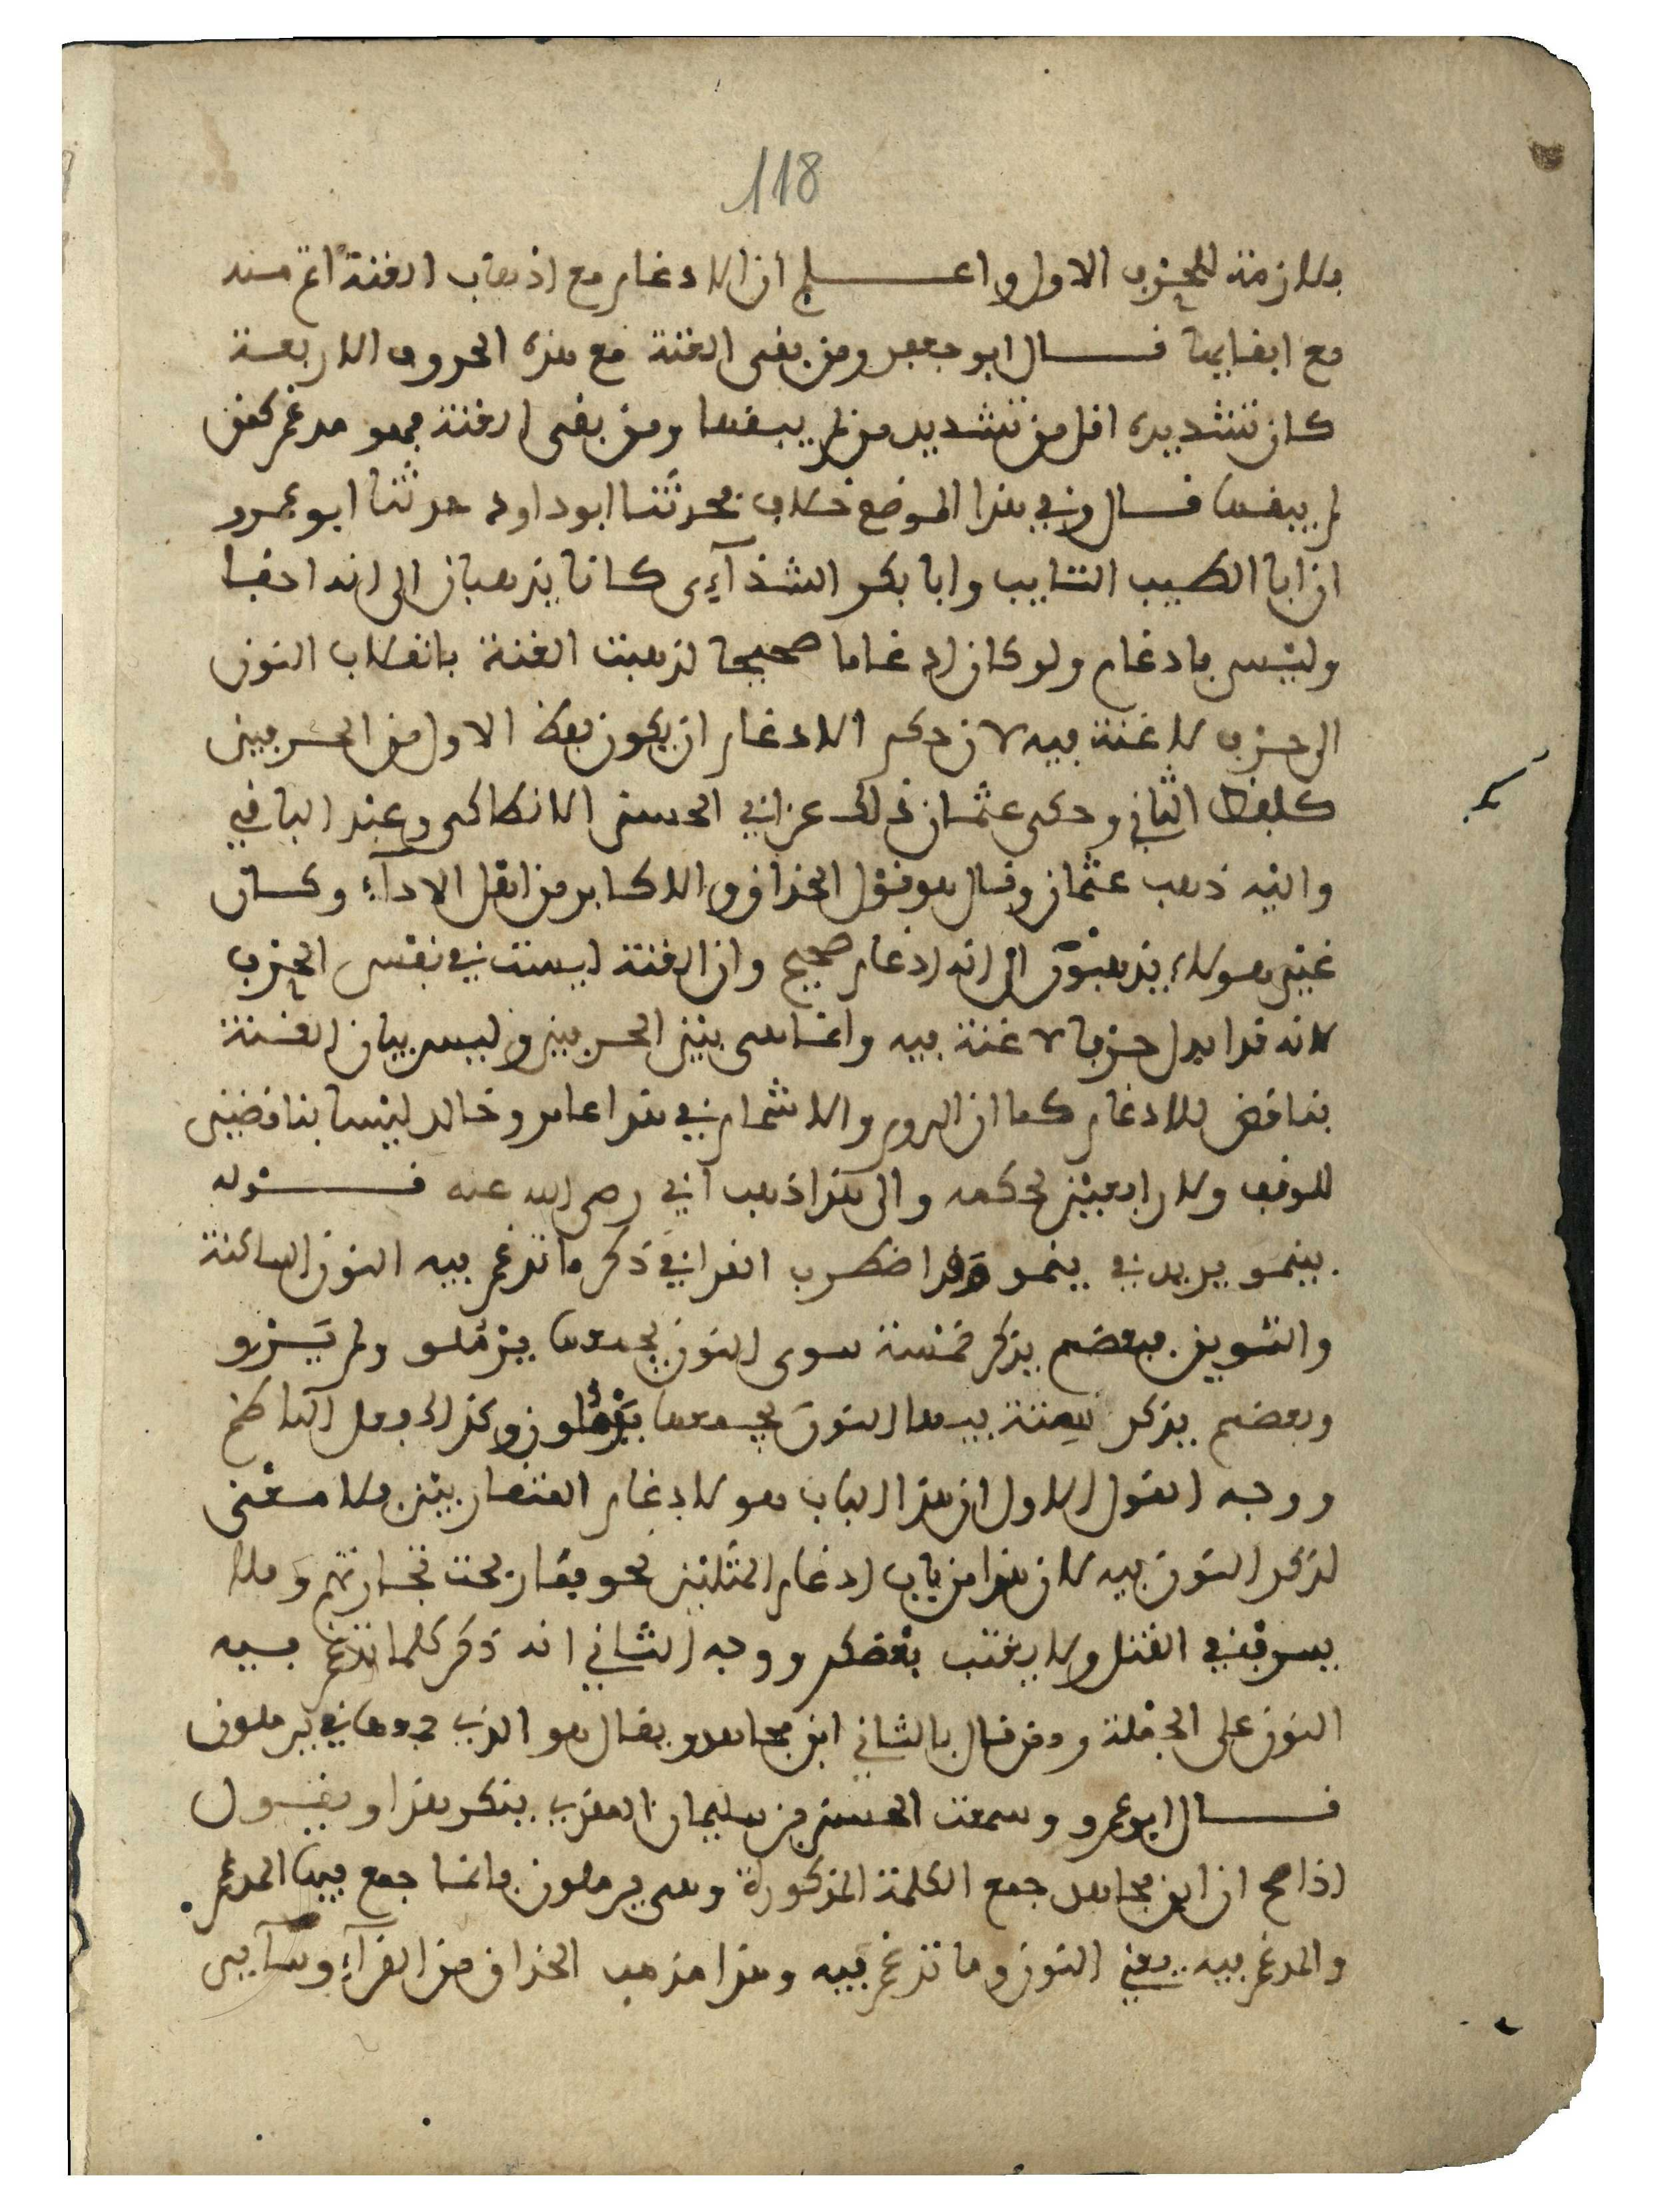 118
ملازمة للحرف الاول واعلم ان الادغام مع اذهاب الغنة اتم منه
مع ابقايها قال ابو جعفر ومن بقى الغنة مع هذه الحروف الاربعة
كان تشديده اقل من تشديد من لم يبقها ومن بقى الغنة فهو مدغم كمن
لم يبقها قال وفي هذا الموضع خلاف فحدثنا ابو داود حدثنا ابو عمرو
ان ابا الطيب التايب وابا بكر الشذآءي كانا يذهبان الى انه اخفا
وليس بادغام ولو كان ادغاما صحيحا لذهبت الغنة بانقلاب النون
الى حرف لا غنة فيه لان حكم الادغام ان يكون لفظ الاول من الحرفين
كلفظ الثاني وحكى عثمان ذلك عن ابي الحسن الانطاكي وعبد الباقي
واليه ذهب عثمان وقال هو قول الحذاق والاكابر من اهل الادآء وكان
غير هولاء يذهبون الى انه ادغام صحيح وان الغنة ليست في نفس الحرف
لانه قد ابدل حرفا لا غنة فيه وانما هي بين الحرفين وليس بيان الغنة
بناقض للادغام كما ان الروم والاشمام في هذا عامر وخالد ليسا بناقضين
للوقف ولا رافعين لحكمه والى هذا ذهب ابي رضي الله عنه قوله
بينمو يريد في ينمو وقد اضطرب القراء في ذكر ما تدغم فيه النون الساكنة
والتنوين فبعضهم يذكر خمسة سوى النون يجمعها يرملو ولم يرو
وبعضهم يذكر ستة فيها النون يجمعها يرملون وكذلك فعل الناظم
ووجه القول الاول ان هذا الباب هو لادغام المتقاربين فلا معنى
لذكر النون فيه لان هذا من باب ادغام المثلين نحو فما ربحت تجارتهم و فلا
يسرف في القتل ولا يغتب بعضكم ووجه الثاني انه ذكر كلما تدغم فيه
النون على الجملة وممن قال بالثاني ابن مجاهد ويقال هو الذي جمعها في يرملون
قال ابو عمرو وسمعت الحسن بن سليمان المقري ينكر هذا ويقول
اذا صح ان ابن مجاهد جمع الكلمة المذكورة وهي يرملون فانما جمع فيها المدغم
والمدغم فيه يعني النون وما تدغم فيه وهذا مذهب الحذاق من القرآء وسآير